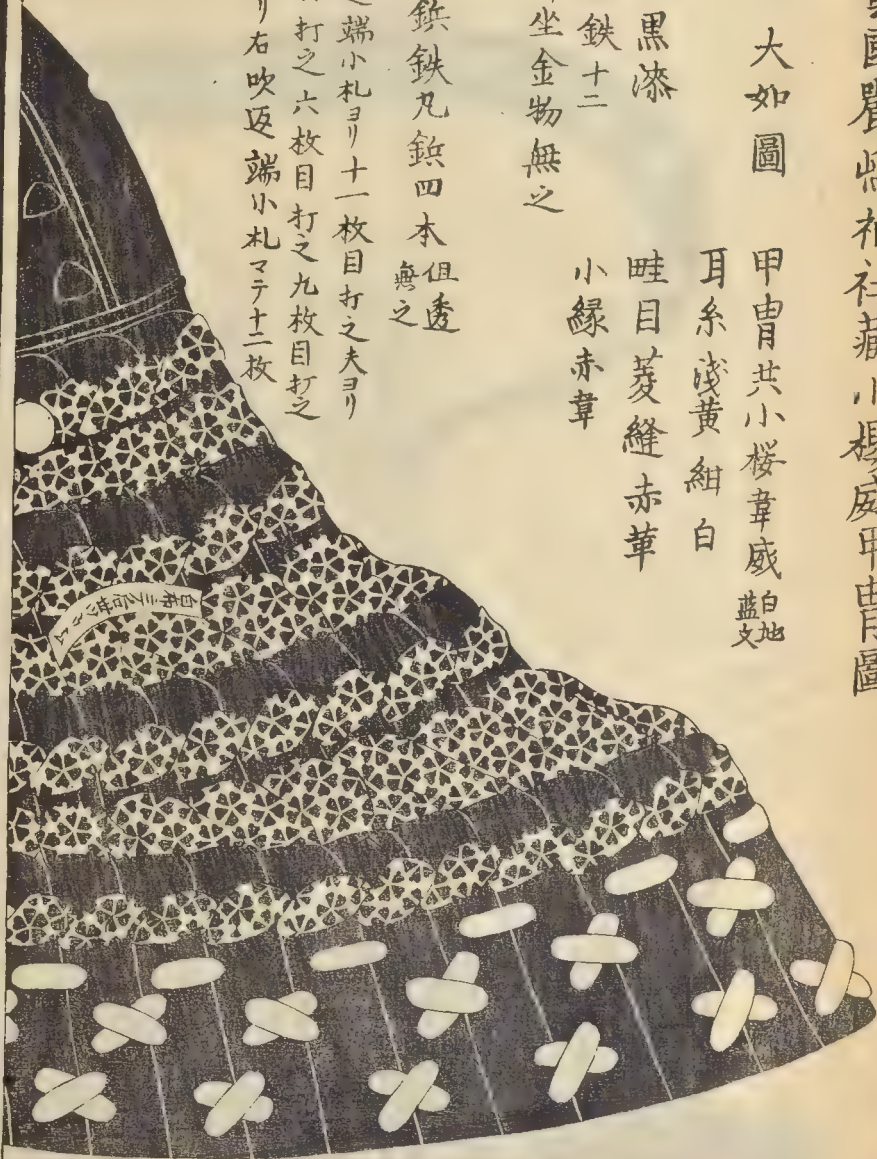 國嚴嶋神社藏小櫻威甲冑圖
大如圖
甲冑共小桜韋威 白地藍文
耳糸浅黄紺白
畦目菱縫赤革
小縁赤韋
黒漆
鉄十二
坐金物無之
鋲鉄丸鋲四本 俎透無之
端小札ヨリ十一枚目打之夫ヨリ
打之六枚目打之九枚目打之
リ右吹返端小札マテ十二枚
白布ニテ